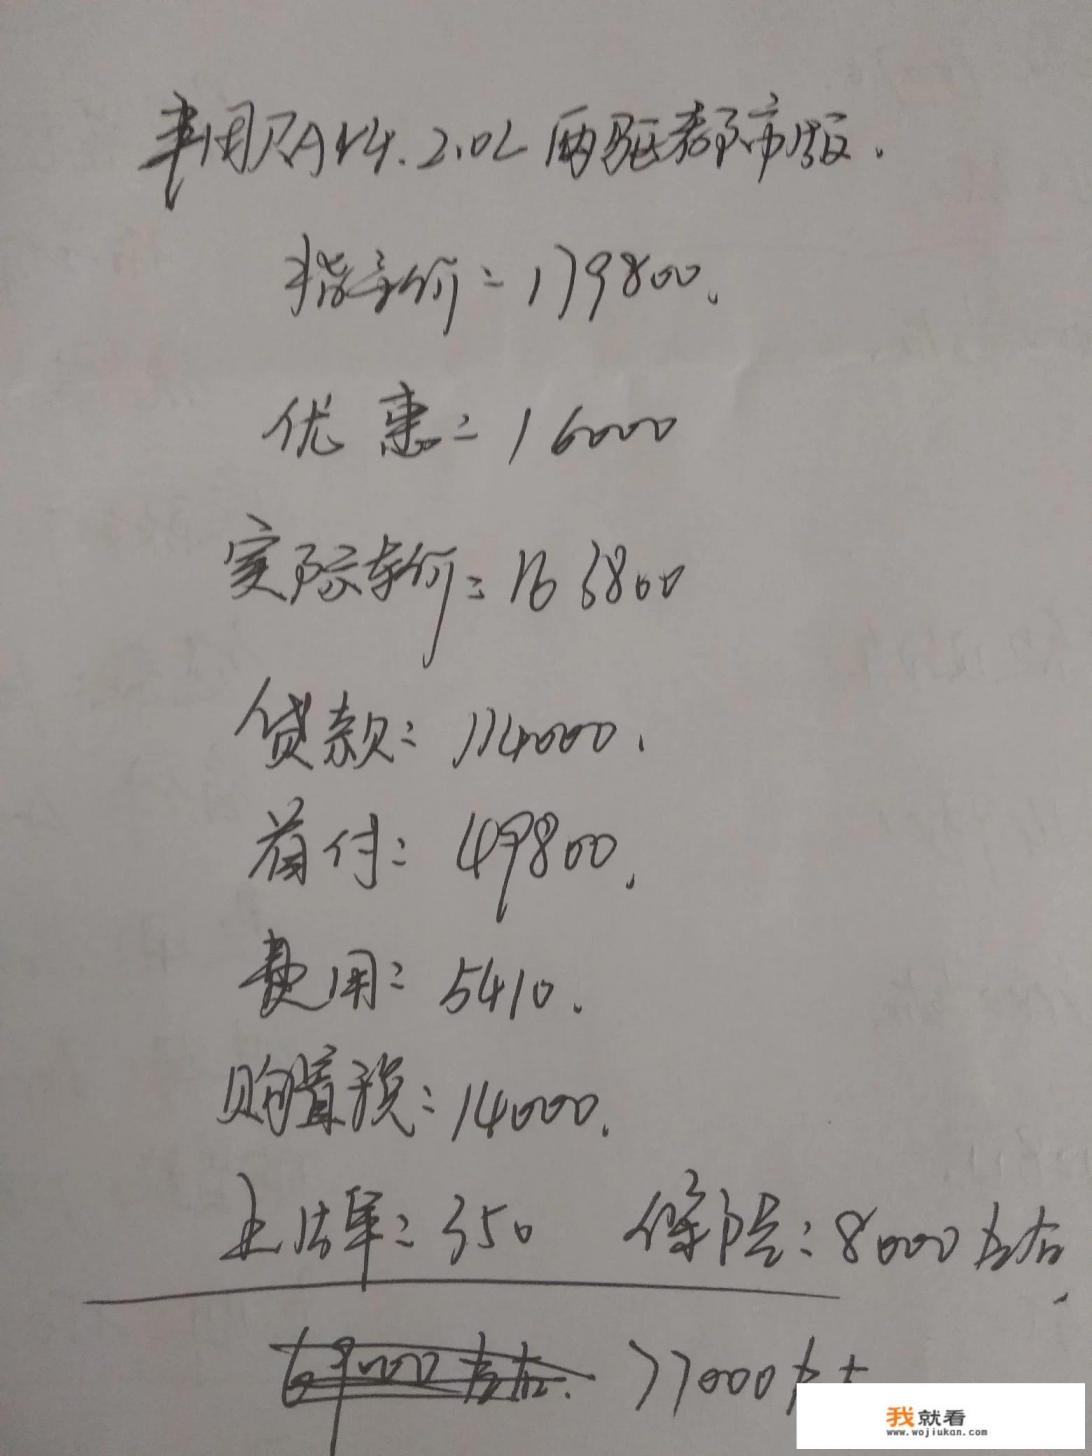 丰田RAV4.2.0L两驱都市版.
指导价=179800.
优惠=16000
实际车价=163800
贷款:114000.
首付:49800.
费用:5410.
购置税:14000.
上牌:350 保险:8000左右.
69000左右. 77000左右
我就看
www.wojiukan.com